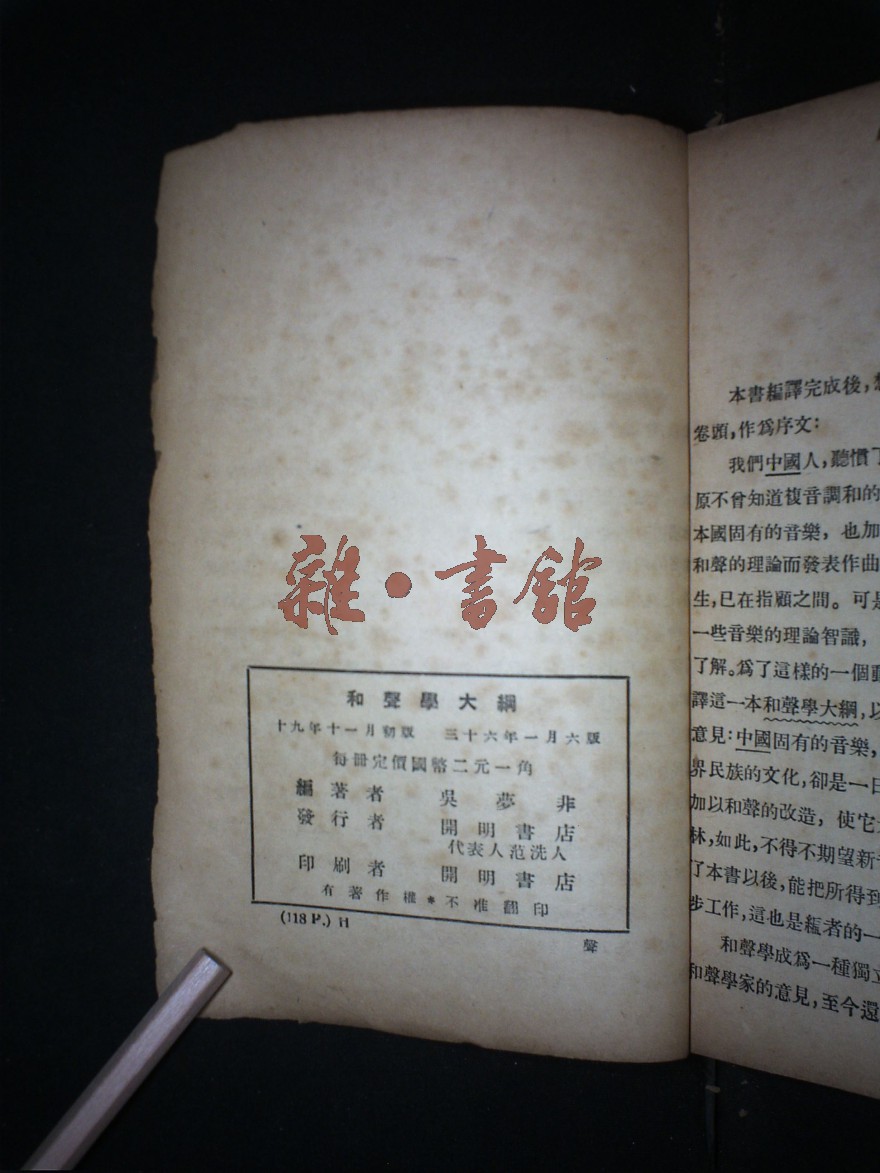 雜·書館
和聲學大綱
十九年十一月初版 三十六年一月六版
每冊定價國幣二元一角
編著者 吳夢非
發行者 開明書店
代表人范洗人
印刷者 開明書店
有著作權*不准翻印
(118 P.) H
聲
本書編譯完成後,
卷頭,作爲序文:
我們中國人,聽慣
原不曾知道複音調和的
本國固有的音樂,也加
和聲的理論而發表作曲
生,已在指顧之間。可是
一些音樂的理論智識,
了解。爲了這樣的一個動
譯這一本和聲學大綱,以
意見:中國固有的音樂,
界民族的文化,卻是一日
加以和聲的改造,使它
林,如此,不得不期望新
了本書以後,能把所得到
步工作,這也是編者的一
和聲學成爲一種獨立
和聲學家的意見,至今還